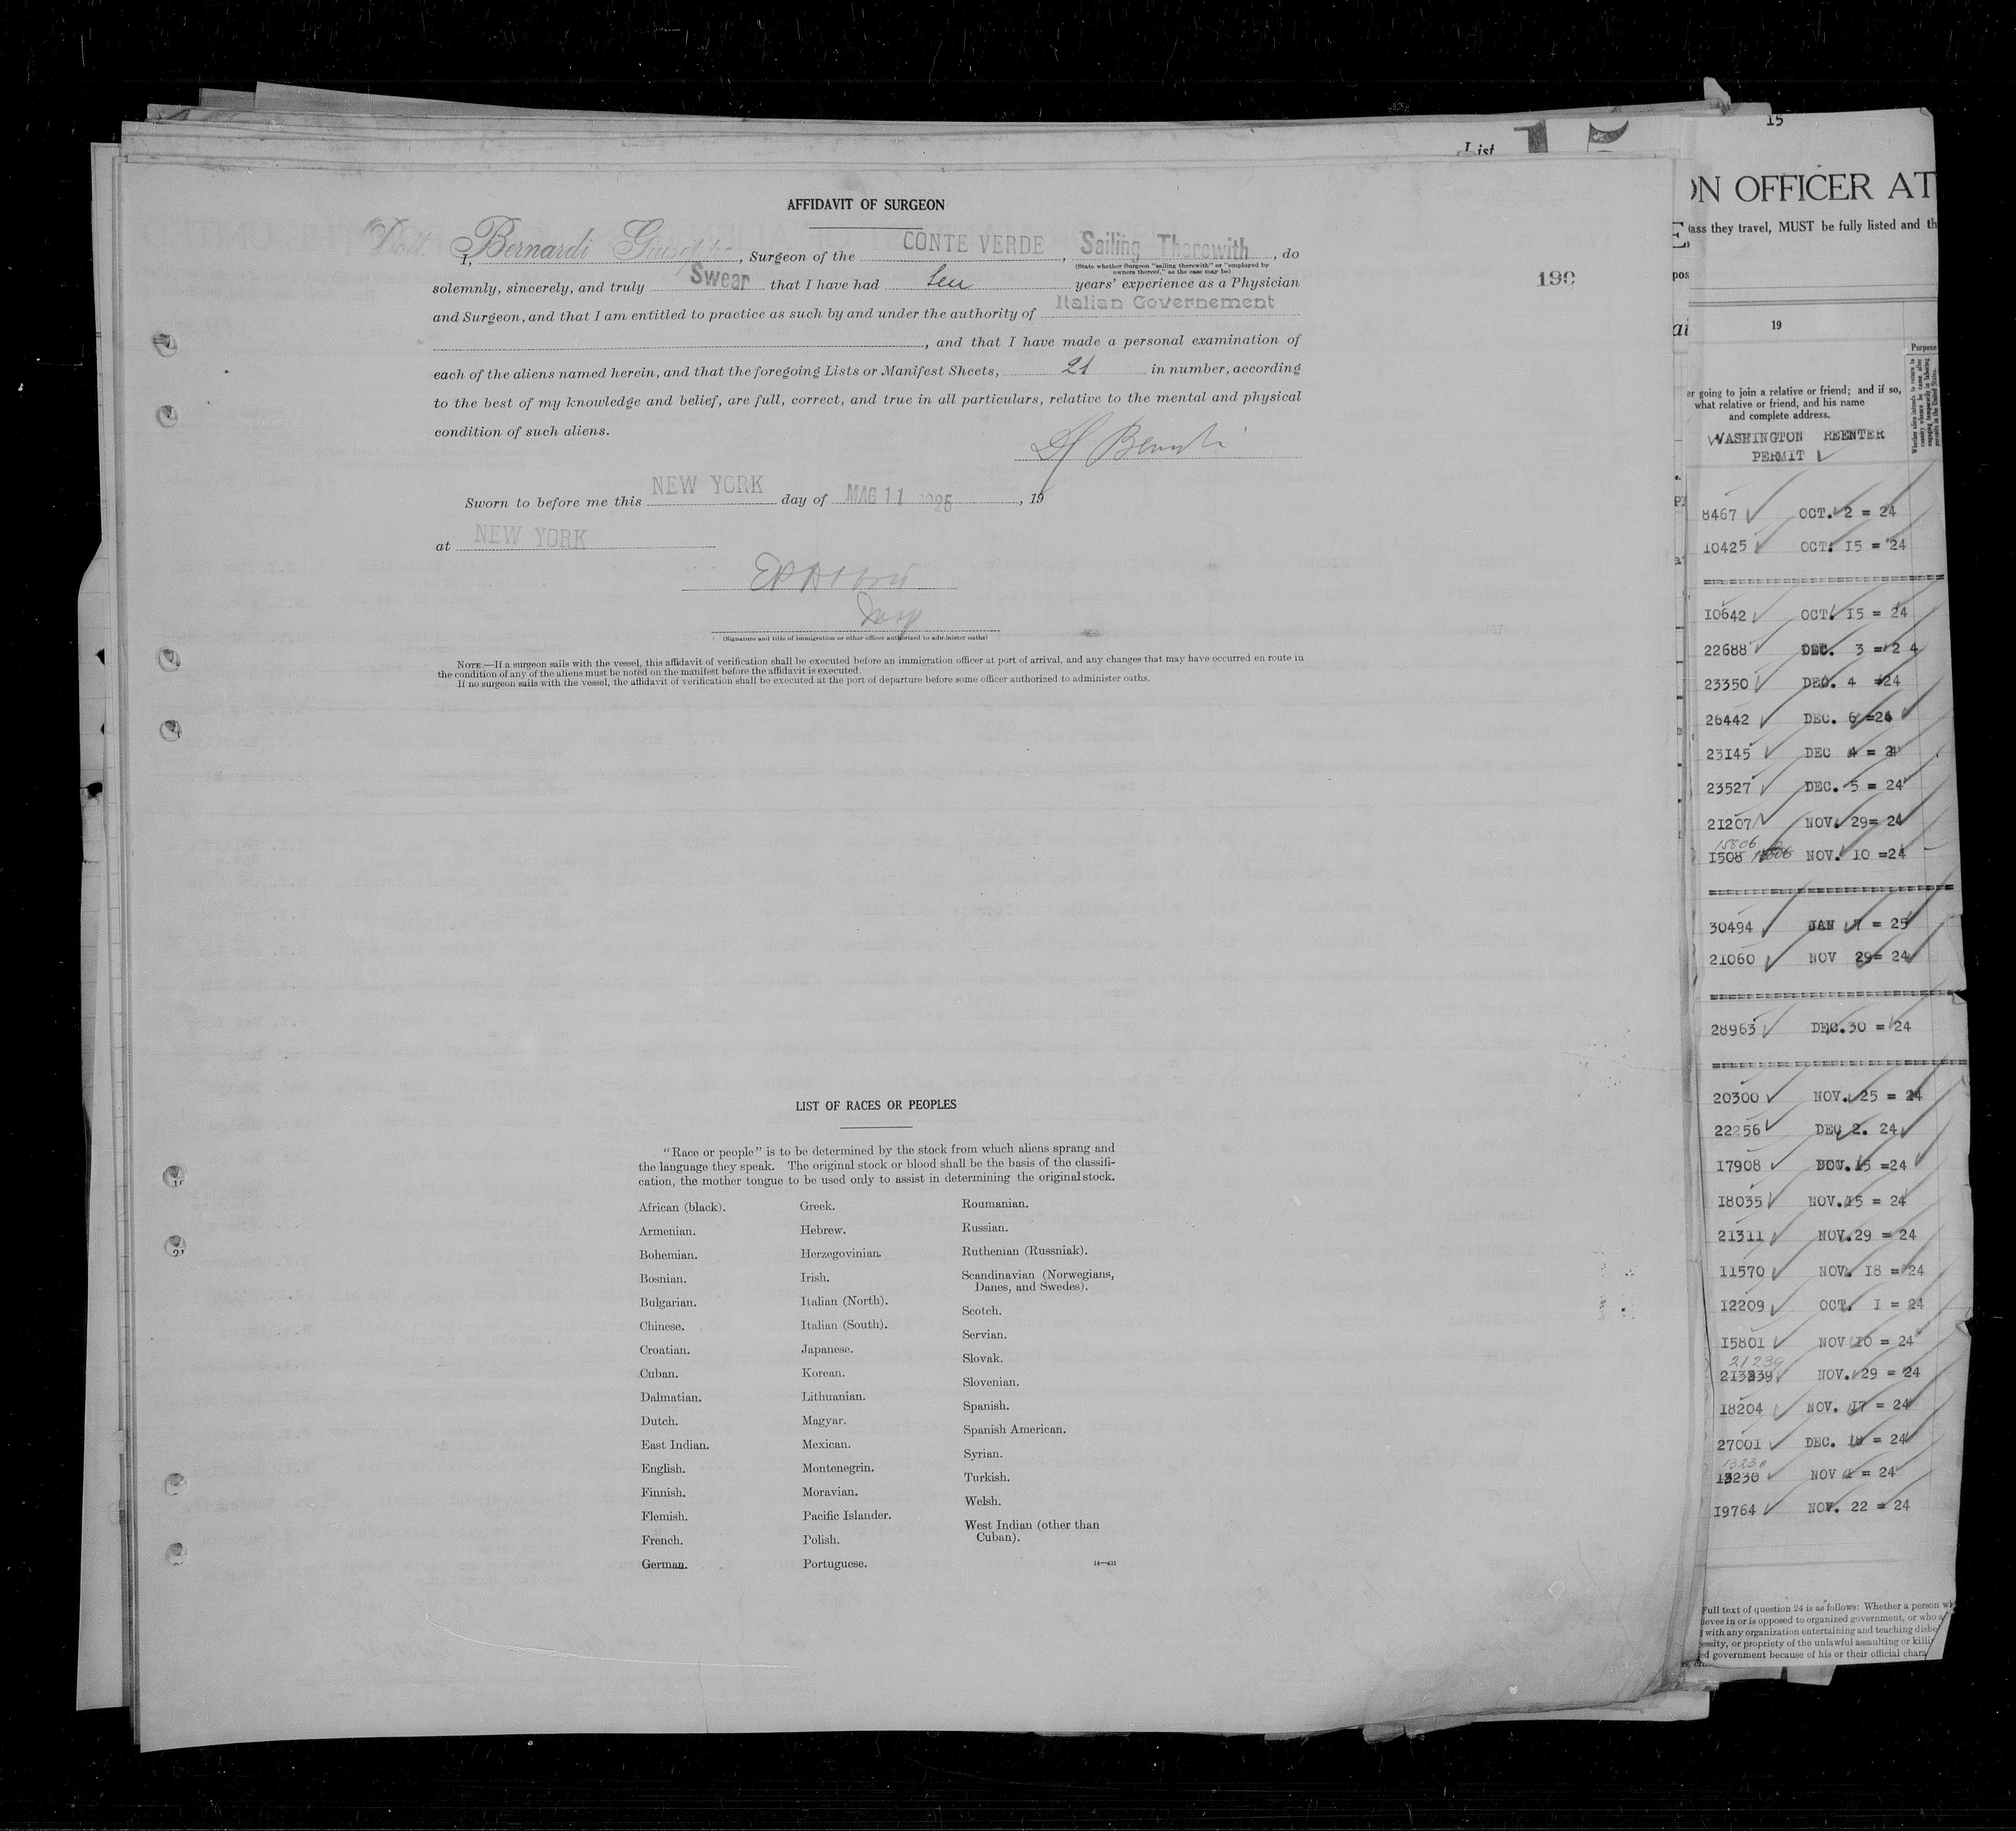 List 15
AFFIDAVIT OF SURGEON
Dott. I, Bernardi Giuseppe, Surgeon of the CONTE VERDE, Sailing Therewith, do
(State whether Surgeon "sailing therewith" or "employed by
owners thereof," as the case may be)
solemnly, sincerely, and truly Swear that I have had ten years' experience as a Physician
and Surgeon, and that I am entitled to practice as such by and under the authority of Italian Governement
, and that I have made a personal examination of
each of the aliens named herein, and that the foregoing Lists or Manifest Sheets, 21 in number, according
to the best of my knowledge and belief, are full, correct, and true in all particulars, relative to the mental and physical
condition of such aliens.
Sworn to before me this NEW YORK day of MAG 11 1925, 19
at NEW YORK
(Signature and title of immigration or other officer authorized to administer oaths)
NOTE.—If a surgeon sails with the vessel, this affidavit of verification shall be executed before an immigration officer at port of arrival, and any changes that may have occurred en route in
the condition of any of the aliens must be noted on the manifest before the affidavit is executed.
If no surgeon sails with the vessel, the affidavit of verification shall be executed at the port of departure before some officer authorized to administer oaths.
190
LIST OF RACES OR PEOPLES
"Race or people" is to be determined by the stock from which aliens sprang and
the language they speak. The original stock or blood shall be the basis of the classifi-
cation, the mother tongue to be used only to assist in determining the original stock.
African (black).
Armenian.
Bohemian.
Bosnian.
Bulgarian.
Chinese.
Croatian.
Cuban.
Dalmatian.
Dutch.
East Indian.
English.
Finnish.
Flemish.
French.
German.
Greek.
Hebrew.
Herzegovinian.
Irish.
Italian (North).
Italian (South).
Japanese.
Korean.
Lithuanian.
Magyar.
Mexican.
Montenegrin.
Moravian.
Pacific Islander.
Polish.
Portuguese.
Roumanian.
Russian.
Ruthenian (Russniak).
Scandinavian (Norwegians,
Danes, and Swedes).
Scotch.
Servian.
Slovak.
Slovenian.
Spanish.
Spanish American.
Syrian.
Turkish.
Welsh.
West Indian (other than
Cuban).
14—431
15
ON OFFICER AT
ass they travel, MUST be fully listed and th
pos
19
Purpose
er going to join a relative or friend; and if so,
what relative or friend, and his name
and complete address.
WASHINGTON REENTER
PERMIT
8467 OCT. 2 = 24
10425 OCT. 15 = 24
10642 OCT. 15 = 24
22688 DEC. 3 = 2 4
23350 DEC. 4 =24
26442 DEC. 6 =24
23145 DEC 4 = 24
23527 DEC. 5 = 24
21207 NOV. 29= 24
15806
1508 NOV. 10 =24
30494 JAN 7 = 25
21060 NOV 29= 24
28963 DEC.30 = 24
20300 NOV. 25 = 24
22256 DEC 2. 24
17908 NOV.15 =24
18035 NOV.15 = 24
21311 NOV.29 = 24
11570 NOV. 18 = 24
12209 OCT. 1 = 24
15801 NOV 10 = 24
21239
213239 NOV. 29 = 24
18204 NOV. 17 = 24
27001 DEC. 18 = 24
13230
13230 NOV 1 = 24
19764 NOV. 22 = 24
Full text of question 24 is as follows: Whether a person wh
ieves in or is opposed to organized government, or who a
with any organization entertaining and teaching disbe
essity, or propriety of the unlawful assaulting or killi
ed government because of his or their official chara